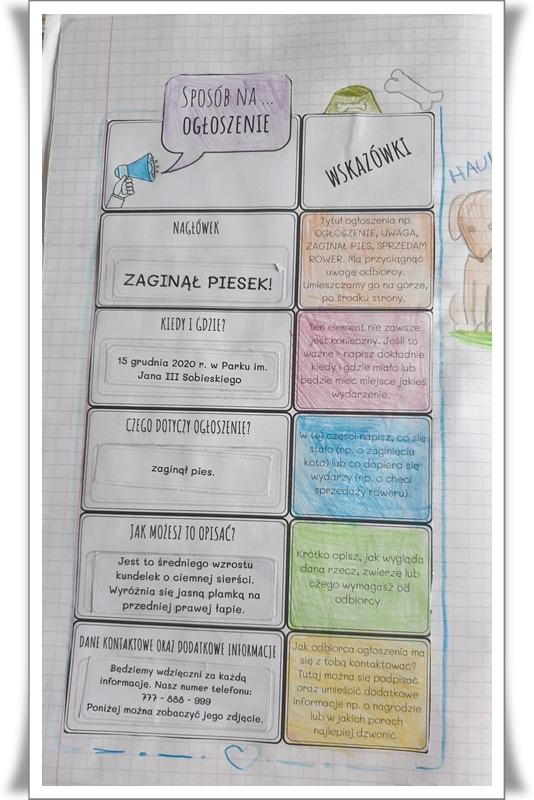 SPOSÓB NA ...
OGŁOSZENIE
WSKAZÓWKI
HAU
NAGŁÓWEK
ZAGINĄŁ PIESEK!
Tytuł ogłoszenia np.
OGŁOSZENIE, UWAGA,
ZAGINĄŁ PIES, SPRZEDAM
ROWER. Ma przyciągnąć
uwagę odbiorcy.
Umieszczamy go na górze,
po środku strony.
KIEDY I GDZIE?
15 grudnia 2020 r. w Parku im.
Jana III Sobieskiego
Ten element nie zawsze
jest konieczny. Jeśli to
ważne - napisz dokładnie
kiedy i gdzie miało lub
będzie mieć miejsce jakieś
wydarzenie.
CZEGO DOTYCZY OGŁOSZENIE?
zaginął pies.
W tej części napisz, co się
stało (np. o zaginięciu
kota) lub co dopiero się
wydarzy (np. o chęci
sprzedaży roweru).
JAK MOŻESZ TO OPISAĆ?
Jest to średniego wzrostu
kundelek o ciemnej sierści.
Wyróżnia się jasną plamką na
przedniej prawej łapie.
Krótko opisz, jak wygląda
dana rzecz, zwierzę lub
czego wymagasz od
odbiorcy.
DANE KONTAKTOWE ORAZ DODATKOWE INFORMACJE
Będziemy wdzięczni za każdą
informację. Nasz numer telefonu:
777 - 888 - 999
Poniżej można zobaczyć jego zdjęcie.
Jak odbiorca ogłoszenia ma
się z tobą kontaktować?
Tutaj można się podpisać
oraz umieścić dodatkowe
informacje np. o nagrodzie
lub w jakich porach
najlepiej dzwonić.